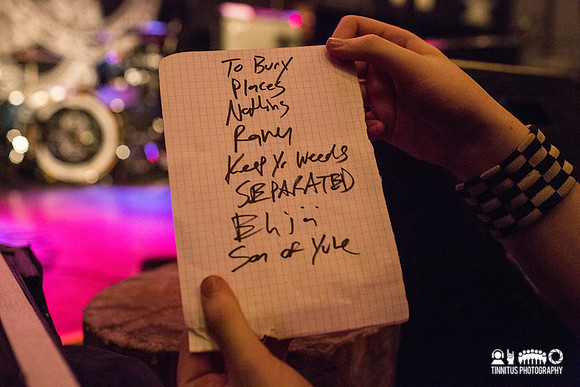 To Bury
Places
Nothing
Keep Yr Weeds
SEPARATED
Son of
TINNITUS PHOTOGRAPHY